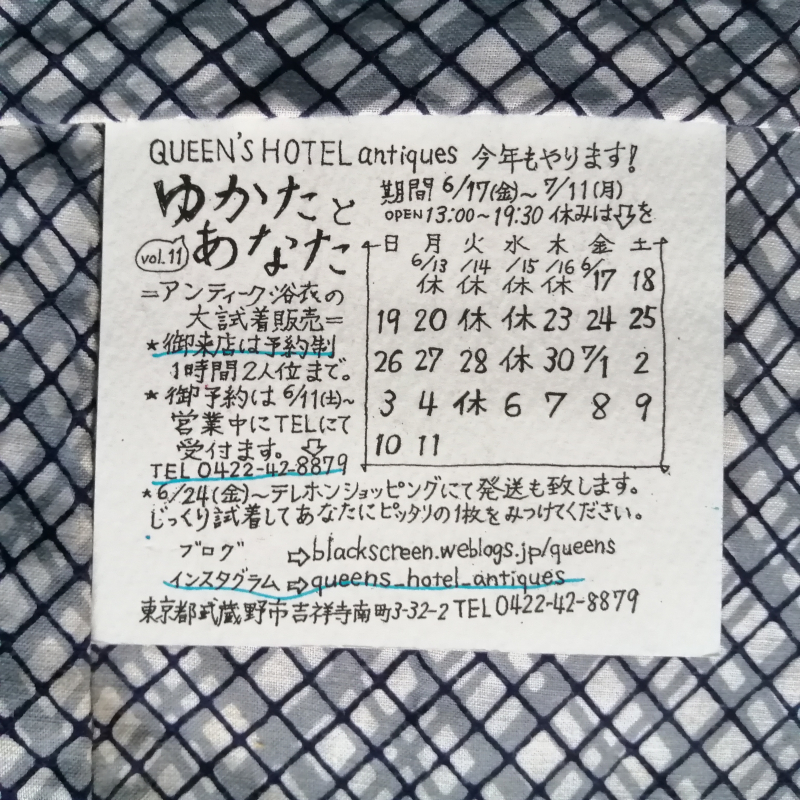 QUEEN'S HOTEL antiques 今年もやります!
ゆかたと
あなた
vol.11
=アンティーク浴衣の
大試着販売=
★御来店は予約制
1時間2人位まで。
★御予約は6/11(土)~
営業中にTELにて
受付ます。⇩
TEL 0422-42-8879
期間 6/17(金)~7/11(月)
OPEN 13:00~19:30 休みは⇩を
日 月 火 水 木 金 土
6/13 /14 /15 /16 6/
休 休 休 休 17 18
19 20 休 休 23 24 25
26 27 28 休 30 7/1 2
3 4 休 6 7 8 9
10 11
★6/24(金)~テレホンショッピングにて発送も致します。
じっくり試着してあなたにピッタリの1枚をみつけてください。
ブログ ⇨blackscreen.weblogs.jp/queens
インスタグラム ⇨queens_hotel_antiques
東京都武蔵野市吉祥寺南町3-32-2 TEL0422-42-8879